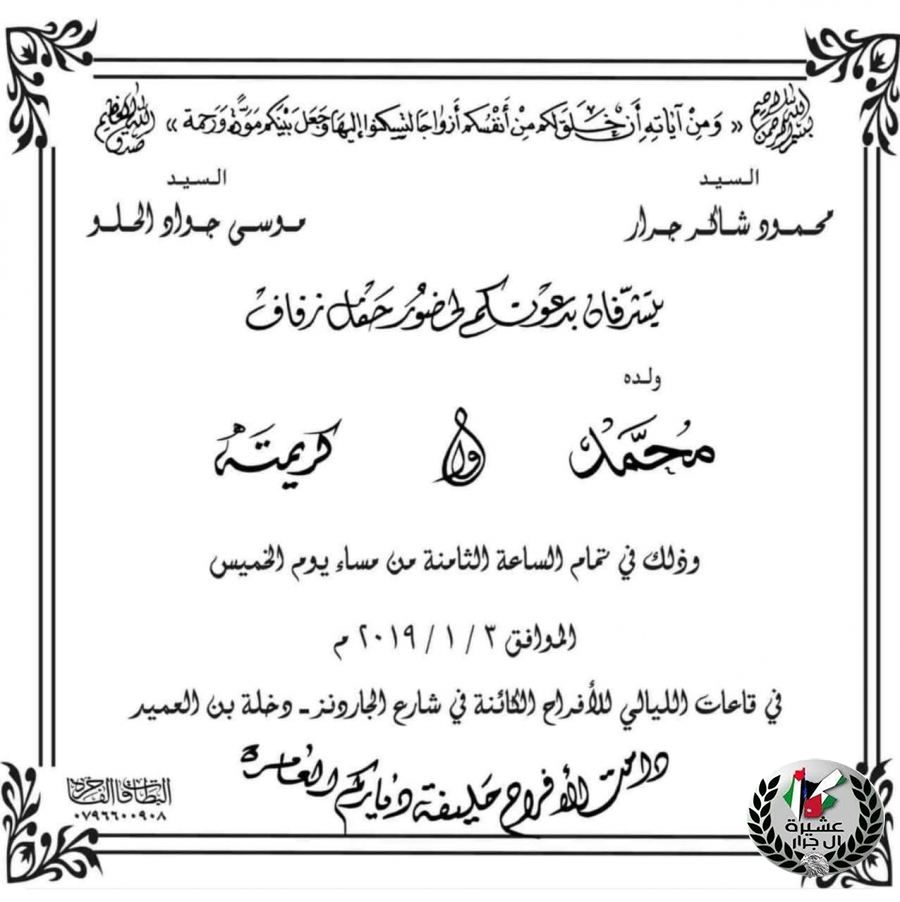 بسم الله الرحمن الرحيم « وَمِنْ آيَاتِهِ أَنْ خَلَقَ لَكُم مِنْ أَنْفُسِكُم أَزْوَاجَا لتَسكنُوا إليهَا وَجَعَلَ بَيْنَكُم مَوَدَّةً وَرَحمَة » صدق الله العظيم
السيد السيد
محمود شاكر جرار موسى جواد الحلو
يتشرّفان بدعوتكم لحضُور حَفل زفاف
ولده
مُحمَّد و كريمته
وذلك في تمام الساعة الثامنة من مساء يوم الخميس
الموافق ٣ / ١ / ٢٠١٩ م
في قاعات الليالي للأفراح الكائنة في شارع الجاردنز - دخلة بن العميد
دامت الأفراح حليفة دياركم العامرة
البطاقات الفاخرة
٠٧٩٦٦٠٠٩٠٨
عشيرة
ال جرار